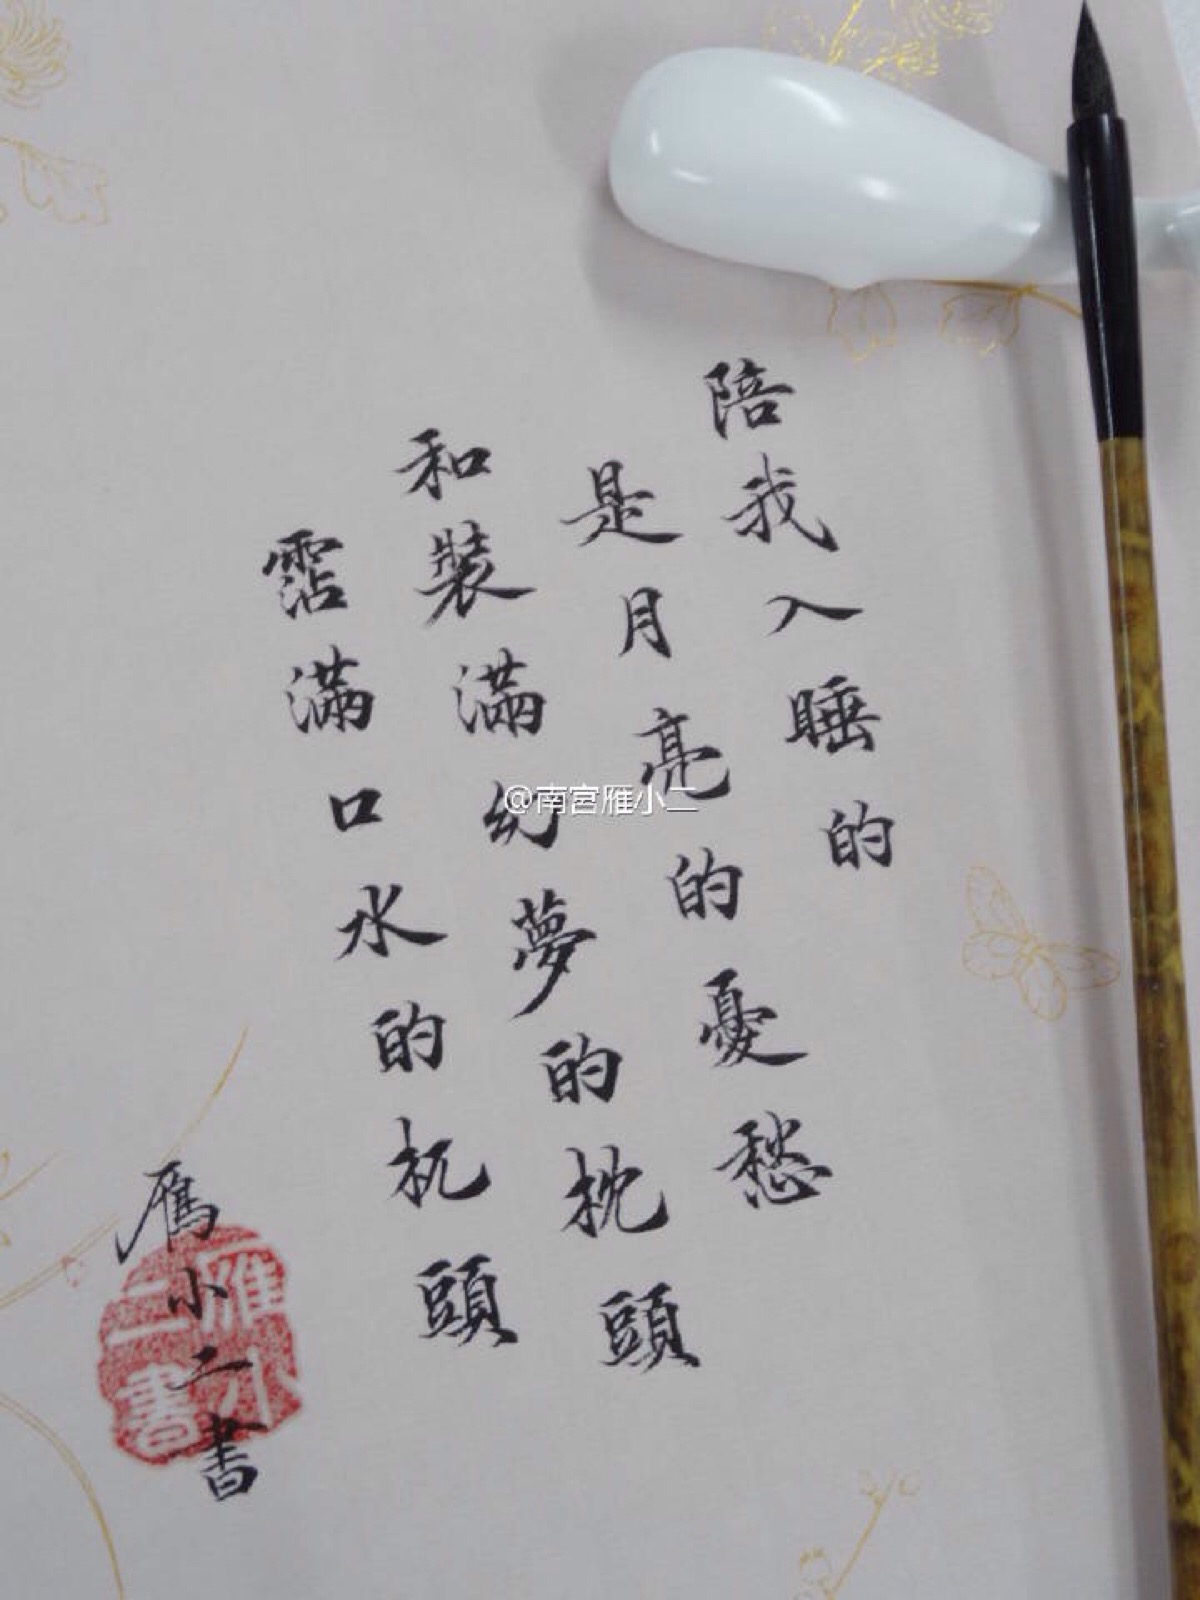 陪我入睡的
是月亮的憂愁
和裝滿幻夢的枕頭
霑滿口水的枕頭
雁小二書
雁小二書
@南宮雁小二